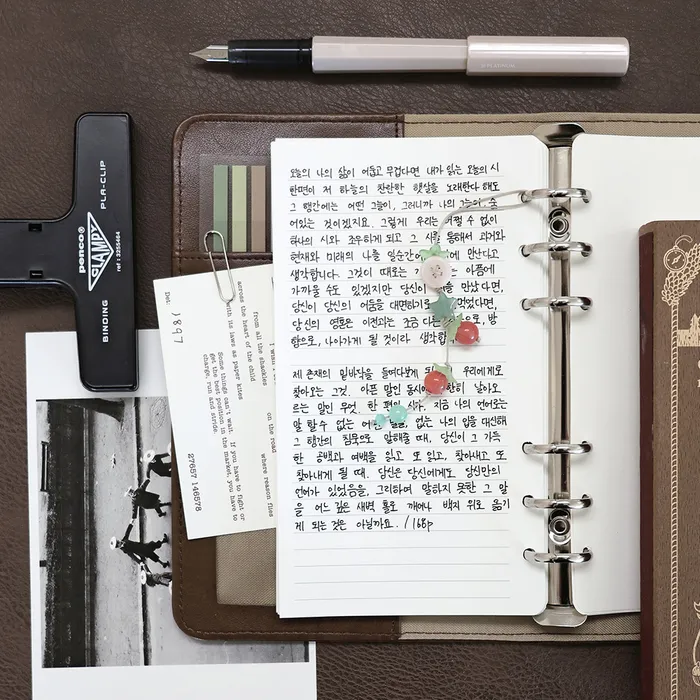 PLATINUM
penco®
STAMPY
ref : 3255464
PLA-CLIP
BINDING
오늘의 나의 삶이 어둡고 무겁다면 내가 읽는 오늘의 시
한편이 저 하늘의 찬란한 햇살을 노래한다 해도
그 행간에는 어떤 그늘이, 그러니까 나의 그늘이 숨
어있는 것이겠지요. 그렇게 우리는 어쩔 수 없이
하나의 시와 조우하게 되고 그 시를 통해서 과거와
현재와 미래의 나를 일순간에 만난다고
생각합니다. 그것이 때로는 아픔에
가까울 수도 있겠지만 당신이 를 만났다면,
당신이 당신의 어둠을 대면하기로 먹었다면,
당신의 영혼은 이전과는 조금 다 으로, 방
향으로, 나아가게 될 것이라 생각합
제 존재의 밑바닥을 들여다보게 될 우리에게로
찾아오는 그것. 아픈 말인 동시에 한히 날아오
르는 말인 무엇. 한 편의 시가. 지금 나의 언어로는
말 할 수 없는 어떤 말을, 없는 나의 입을 대신해
그 행간의 침묵으로 말해줄 때, 당신이 그 가득
한 공백과 여백을 읽고 또 읽고, 찾아내고 또
찾아내게 될 때. 당신은 당신에게도 당신만의
언어가 있었음을, 그리하여 말하지 못한 그 말
을 어느 깊은 새벽 홀로 깨어나 백지 위로 옮기
게 되는 것은 아닐까요. /168p
Dec. 1897
across the heart of the child
from all the shackles
on the road
where reason flies
with its laws as paper kites
Some things can't wait. If you have to fight or
get the best position in the market, you have to
charge, run and stride.
27657 146578